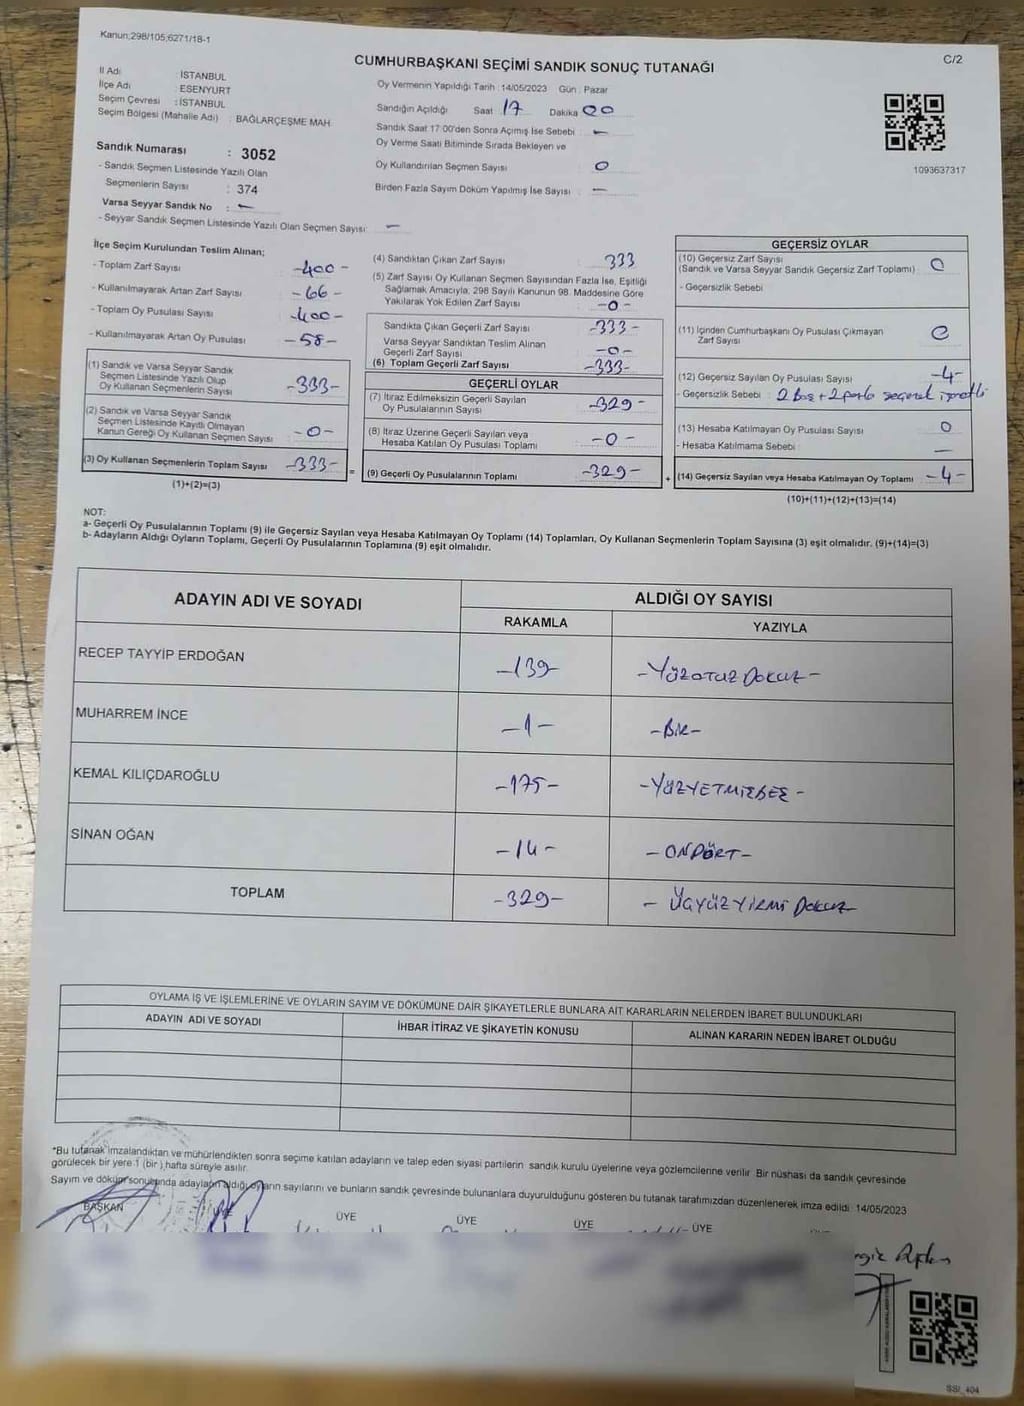 Kanun;298/105;6271/18-1
C/2
CUMHURBAŞKANI SEÇİMİ SANDIK SONUÇ TUTANAĞI
İl Adı : İSTANBUL
İlçe Adı : ESENYURT
Seçim Çevresi : İSTANBUL
Seçim Bölgesi (Mahalle Adı) : BAĞLARÇEŞME MAH.
Oy Vermenin Yapıldığı Tarih : 14/05/2023 Gün : Pazar
Sandığın Açıldığı Saat : 17 Dakika 00
Sandık Saat 17:00'den Sonra Açımış İse Sebebi : –
Oy Verme Saati Bitiminde Sırada Bekleyen ve
Oy Kullandırılan Seçmen Sayısı : 0
Birden Fazla Sayım Döküm Yapılmış İse Sayısı : –
1093637317
Sandık Numarası : 3052
- Sandık Seçmen Listesinde Yazılı Olan
Seçmenlerin Sayısı : 374
Varsa Seyyar Sandık No : –
- Seyyar Sandık Seçmen Listesinde Yazılı Olan Seçmen Sayısı: –
İlçe Seçim Kurulundan Teslim Alınan;
- Toplam Zarf Sayısı -400-
- Kullanılmayarak Artan Zarf Sayısı -66-
- Toplam Oy Pusulası Sayısı -400-
- Kullanılmayarak Artan Oy Pusulası -58-
(1) Sandık ve Varsa Seyyar Sandık
Seçmen Listesinde Yazılı Olup
Oy Kullanan Seçmenlerin Sayısı -333-
(2) Sandık ve Varsa Seyyar Sandık
Seçmen Listesinde Kayıtlı Olmayan
Kanun Gereği Oy Kullanan Seçmen Sayısı -0-
(3) Oy Kullanan Seçmenlerin Toplam Sayısı -333-
(1)+(2)=(3)
(4) Sandıktan Çıkan Zarf Sayısı : 333
(5) Zarf Sayısı Oy Kullanan Seçmen Sayısından Fazla İse, Eşitliği
Sağlamak Amacıyla, 298 Sayılı Kanunun 98. Maddesine Göre
Yakılarak Yok Edilen Zarf Sayısı -0-
Sandıkta Çıkan Geçerli Zarf Sayısı -333-
Varsa Seyyar Sandıktan Teslim Alınan
Geçerli Zarf Sayısı -0-
(6) Toplam Geçerli Zarf Sayısı -333-
GEÇERLİ OYLAR
(7) İtiraz Edilmeksizin Geçerli Sayılan
Oy Pusulalarının Sayısı -329-
(8) İtiraz Üzerine Geçerli Sayılan veya
Hesaba Katılan Oy Pusulası Toplamı -0-
= (9) Geçerli Oy Pusulalarının Toplamı -329-
GEÇERSİZ OYLAR
(10) Geçersiz Zarf Sayısı
(Sandık ve Varsa Seyyar Sandık Geçersiz Zarf Toplamı) : 0
- Geçersizlik Sebebi :
(11) İçinden Cumhurbaşkanı Oy Pusulası Çıkmayan
Zarf Sayısı 0
(12) Geçersiz Sayılan Oy Pusulası Sayısı : -4-
- Geçersizlik Sebebi : 2 Boş + 2 fazla seçenek işaretli
(13) Hesaba Katılmayan Oy Pusulası Sayısı : 0
- Hesaba Katılmama Sebebi : –
+ (14) Geçersiz Sayılan veya Hesaba Katılmayan Oy Toplamı -4-
(10)+(11)+(12)+(13)=(14)
NOT:
a- Geçerli Oy Pusulalarının Toplamı (9) ile Geçersiz Sayılan veya Hesaba Katılmayan Oy Toplamı (14) Toplamları, Oy Kullanan Seçmenlerin Toplam Sayısına (3) eşit olmalıdır. (9)+(14)=(3)
b- Adayların Aldığı Oyların Toplamı, Geçerli Oy Pusulalarının Toplamına (9) eşit olmalıdır.
ADAYIN ADI VE SOYADI
ALDIĞI OY SAYISI
RAKAMLA YAZIYLA
RECEP TAYYİP ERDOĞAN -139- -YÜZOTUZ DOKUZ-
MUHARREM İNCE -1- -BİR-
KEMAL KILIÇDAROĞLU -175- -YÜZYETMİŞBEŞ-
SİNAN OĞAN -14- -ONDÖRT-
TOPLAM -329- - ÜÇYÜZ YİRMİ DOKUZ
OYLAMA İŞ VE İŞLEMLERİNE VE OYLARIN SAYIM VE DÖKÜMÜNE DAİR ŞİKAYETLERLE BUNLARA AİT KARARLARIN NELERDEN İBARET BULUNDUKLARI
ADAYIN ADI VE SOYADI İHBAR İTİRAZ VE ŞİKAYETİN KONUSU ALINAN KARARIN NEDEN İBARET OLDUĞU
*Bu tutanak imzalandıktan ve mühürlendikten sonra seçime katılan adayların ve talep eden siyasi partilerin sandık kurulu üyelerine veya gözlemcilerine verilir. Bir nüshası da sandık çevresinde
görülecek bir yere 1 (bir ) hafta süreyle asılır.
Sayım ve döküm sonucunda adayların aldığı oyların sayılarını ve bunların sandık çevresinde bulunanlara duyurulduğunu gösteren bu tutanak tarafımızdan düzenlenerek imza edildi. 14/05/2023
BAŞKAN ÜYE ÜYE ÜYE ÜYE ÜYE
SSI_404